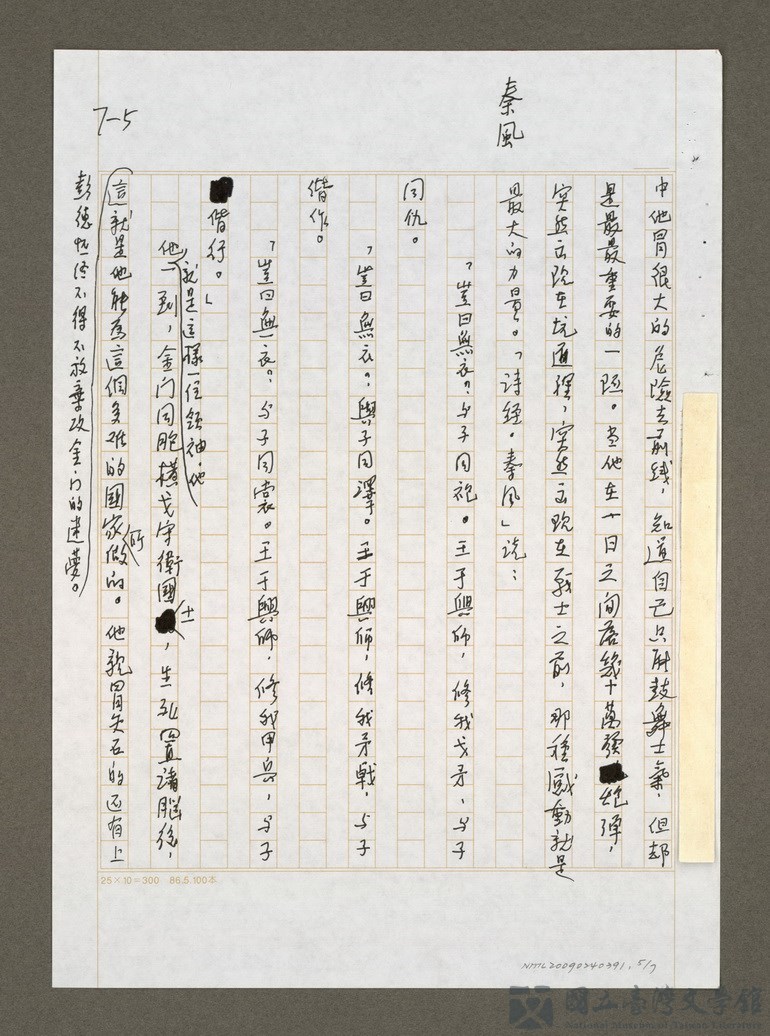 秦風
7-5
中他冒很大的危險去前线,知道自己只能鼓舞士氣,但却
是最最重要的一项。当他在十日之间落幾十萬發炮彈,
突然出现在坑道裡,突然出现在戰士之前,那種感動就是
最大的力量。「詩经。秦风」说:
「豈曰無衣?与子同袍。王于興師,修我戈矛,与子
同仇。
「豈曰無衣?與子同澤。王于興師,修我矛戟,与子
偕作。
「豈曰無衣?与子同裳。王于興師,修我甲兵,与子
偕行。」
就是這樣一位領袖,他
他一到,金门同胞橫戈守衛國士,生死置諸腦後,
這就是他能為這個多难的國家所做的。他親冒矢石的还有上
彭德怀终不得不放棄攻金门的迷夢。
25×10=300 86.5.100本
NMTL20090240391. 5/7
國立臺灣文學館
National Museum of Taiwan Literature